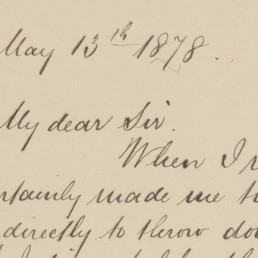 May 13th 1878.
My dear Sir.
When I
certainly made me
directly to throw